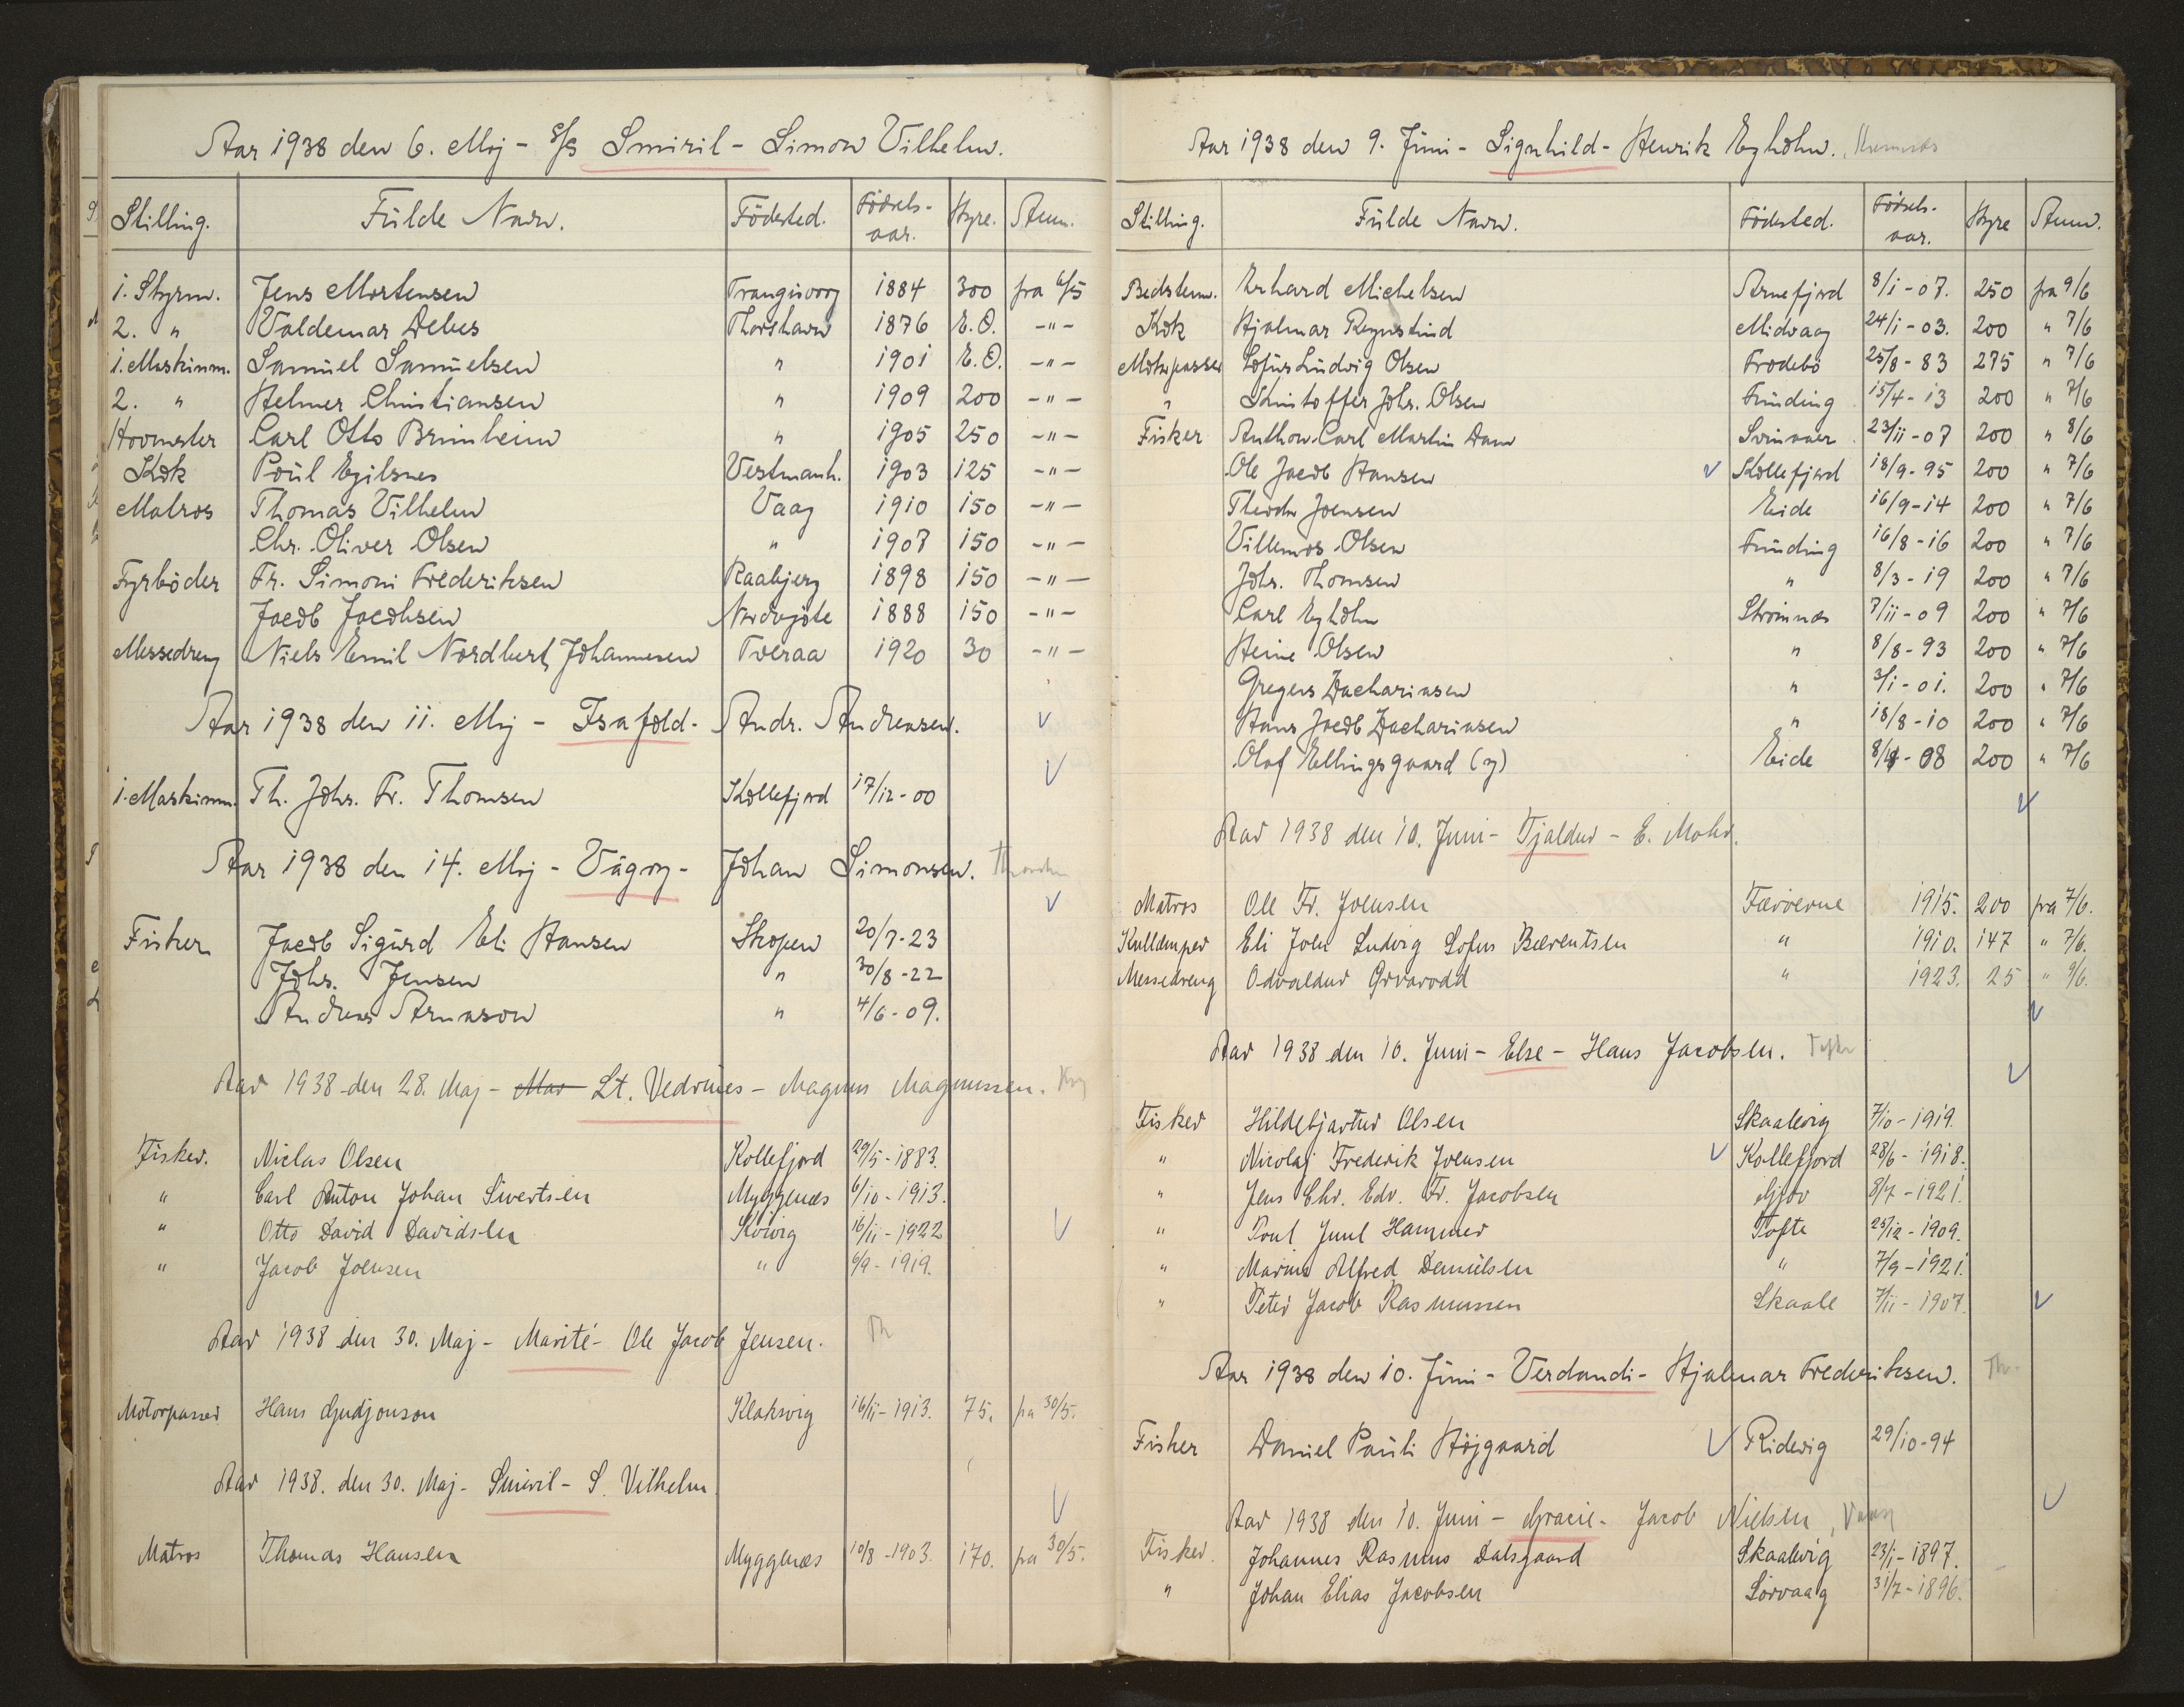 Aar 1938 den 6. Maj - S/S Smiril - Simon Vilhelm.
Stilling. Fulde Navn. Födested. Födselsaar. Hyre. Anm.
1. Styrm. Jens Mortensen Trangisvaag 1884 300 fra 6/5
2. " Valdemar Debes Thorshavn 1876 E.O. -"-
1. Maskinm. Samuel Samuelsen " 1901 E.O. -"-
2. " Helmer Christiansen " 1909 200 -"-
Hovmester Carl Otto Brimheim " 1905 250 -"-
Kok Poul Egilsnes Vestmanh. 1903 125 -"-
Matros Thomas Vilhelm Vaag 1910 150 -"-
Chr. Oliver Olsen " 1907 150 -"-
Fyrböder Fr. Simoni Frederiksen Kaabjerg 1898 150 -"-
Jacob Jacobsen Nordragöte 1888 150 -"-
Messedreng Niels Emil Nordbert Johannesen Tveraa 1920 30 -"-
Aar 1938 den 11. Maj - Isafold - Andr. Andreasen.
1. Maskinm. Th. Johs. Fr. Thomsen Kollefjord 17/12-00
Aar 1938 den 14. Maj - Vágoy - Johan Simonsen.
Fisker Jacob Sigurd Eli Hansen Skopen 20/7-23
Johs. Jensen " 30/8-22
Andreas Arnason " 4/6-09.
Aar 1938 den 28. Maj - Mar Lt. Vedrines - Magnus Magnussen.
Fisker. Niclas Olsen Kollefjord 29/5-1883.
" Carl Anton Johan Sivertsen Myggenæs 6/10-1913.
" Otto David Davidsen Kvivig 16/11-1922
" Jacob Joensen " 6/9-1919.
Aar 1938 den 30. Maj - Marité - Ole Jacob Jensen. Th
Motorpasser Hans Gudjonson Klaksvig 16/11-1913. 75. fra 30/5.
Aar 1938. den 30. Maj - Smiril - S. Vilhelm
Matros Thomas Hansen Myggenæs 10/8-1903. 170. fra 30/5.
Aar 1938 den 9. Juni - Signhild - Henrik Eyholm.
Stilling. Fulde Navn. Födested. Födselsaar. Hyre Anm.
Bedstem. Erhard Michelsen Arnefjord 8/1-07. 250 fra 9/6
Kok Hjalmar Reynstind Midvaag 24/1-03. 200 " 7/6
Motorpasser Sofus Ludvig Olsen Frodebö 25/8-83 275 " 7/6
" Kristoffer Johs. Olsen Funding 15/4-13 200 " 7/6
Fisker Anthon Carl Martin Dam Svinaaer 23/11-07 200 " 8/6
Ole Jacob Hansen Kollefjord 18/9-95 200 " 7/6
Theodor Joensen Eide 16/9-14 200 " 7/6
Villemos Olsen Funding 16/8-16 200 " 7/6
Johs. Thomsen " 8/3-19 200 " 7/6
Carl Eyholm Strömnæs 7/11-09 200 " 7/6
Heine Olsen " 8/8-93 200 " 7/6
Gregers Zachariasen " 3/1-01. 200 " 7/6
Hans Jacob Zachariasen " 18/8-10 200 " 7/6
Olaf Ellingsgaard (y) Eide 8/4-08 200 " 7/6
Aar 1938 den 10. Juni - Tjaldur - E. Mohr.
Matros Ole Fr. Joensen Færöerne 1915. 200 fra 7/6.
Kullemper Eli Joen Ludvig Sofus Bærentsen " 1910. 147 " 7/6.
Messedreng Odvaldur Grvarodd " 1923. 25 " 9/6.
Aar 1938 den 10. Juni - Else - Hans Jacobsen.
Fisker Hildebjartur Olsen Skaalevig 7/10-1919.
" Nicolaj Frederik Joensen Kollefjord 28/6-1918.
" Jens Chr. Edv. Fr. Jacobsen Gjov 8/7-1921.
" Poul Juul Hammer Tofte 25/12-1909.
" Marius Alfred Danielsen " 7/9-1921.
" Peter Jacob Rasmussen Skaale 7/11-1907.
Aar 1938 den 10. Juni - Verdandi - Hjalmar Frederiksen. Th.
Fisker Daniel Pauli Höjgaard Ridevig 29/10-94
Aar 1938 den 10. Juni - Gracie - Jacob Nielsen, Vaag
Fisker. Johannes Rasmus Dalsgaard Skaalevig 23/1-1897.
" Johan Elias Jacobsen Sörvaag 31/7-1896.